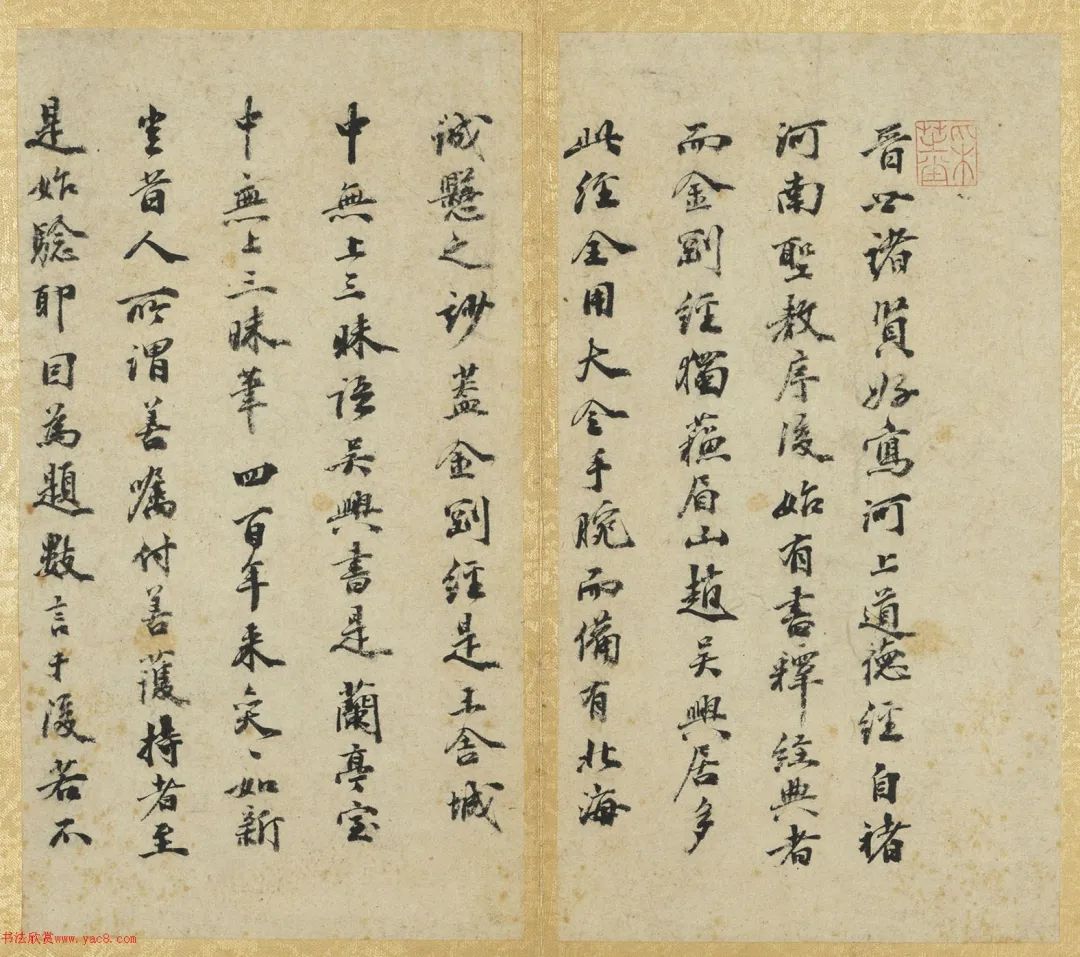 晉世諸賢好寫河上道德經自褚
河南聖教序後始有書釋經典者
而金剛經獨蘓眉山趙吳興居多
此經全用大令手腕而備有北海
誠懸之妙蓋金剛經是王舍城
中無上三昧語吳興書是蘭亭室
中無上三昧筆四百年来奕〻如新
豈昔人所謂善嘱付善護持者至
是始驗耶因為題數言于後若不
书法欣赏www.yac8.com